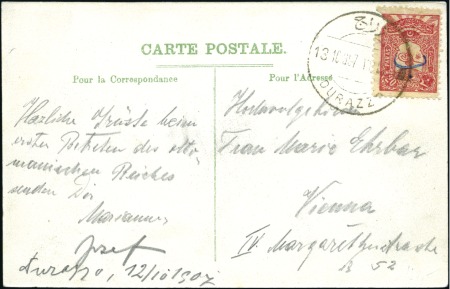 CARTE POSTALE.
Pour la Correspondance
Pour l'Adresse
DURAZZ
Herzliche Grüße beim
ersten Betreten des otto-
manischen Reiches
senden Dir
Josef
Durazzo, 12/10 1907
Hochwolgeboren
Frau Marie Ehrbar
Vienna
IV. Margarethenstrasse
52